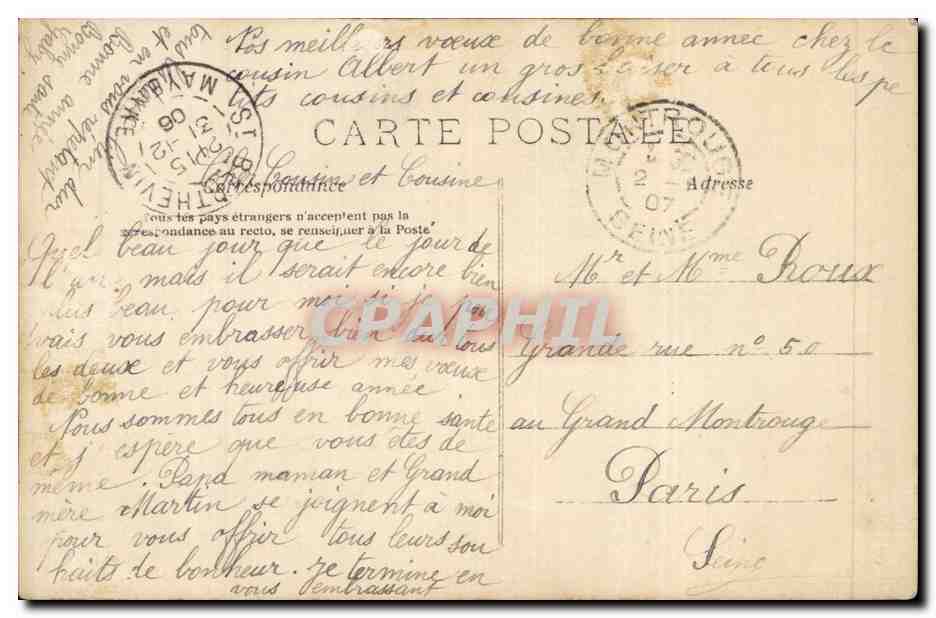 Nos meilleurs vœux de bonne année chez le
cousin Albert un gros baiser à tous les pe
tits cousins et cousines.
CARTE POSTALE
Cher Cousin et Cousine
Correspondance
Tous les pays étrangers n'acceptent pas la
correspondance au recto, se renseigner à la Poste
Quel beau jour que le jour de
l'an, mais il serait encore bien
plus beau pour moi si je pou
vais vous embrasser bien fort tous
les deux et vous offrir mes vœux
de bonne et heureuse année
Nous sommes tous en bonne santé
et j'espère que vous êtes de
même. Papa maman et Grand
mère Martin se joignent à moi
pour vous offrir tous leurs sou
haits de bonheur. Je termine en
vous embrassant
tous et en vous répétant
Bonne année
Bonne santé
ST BERTHEVIN
MAYENNE
31 -12
06
MONTROUGE
2 -
07
SEINE
Adresse
Mr et Mme Roux
Grande rue n° 50
au Grand Montrouge
Paris
Seine
CPAPHIL